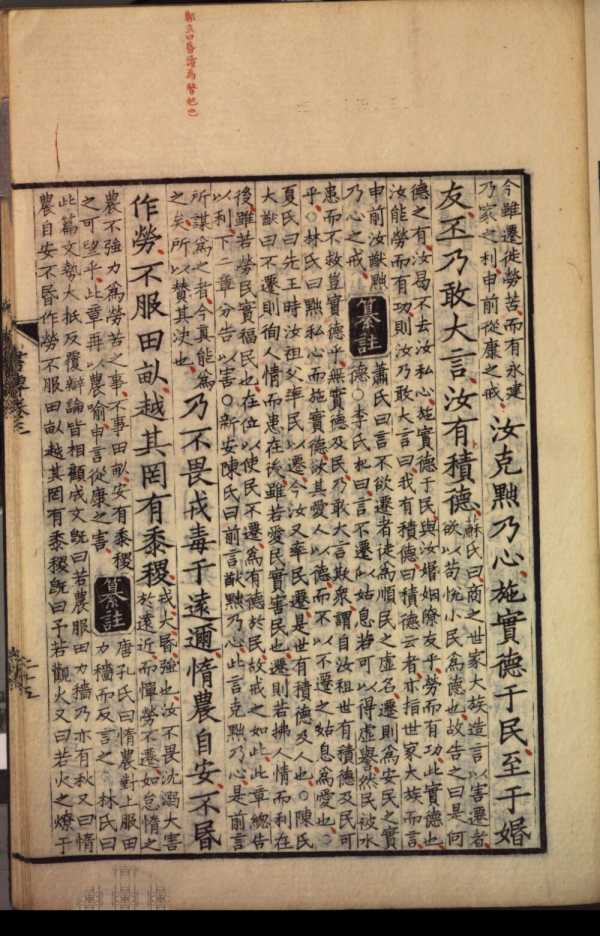 鄭玄曰昏讀為暋勉也
今雖遷徙勞苦而有永建
乃家之利申前從康之戒
汝克黜乃心施實德于民至于婚
友丕乃敢大言汝有積德
蘇氏曰商之世家大族造言以害遷者
欲以苟悅小民為德也故告之曰是何
德之有汝曷不去汝私心施實德于民與汝婚姻僚友乎勞而有功此實德也
汝能勞而有功則汝乃敢大言曰我有積德曰積德云者亦指世家大族而言
申前汝猷黜
乃心之戒
纂註
蕭氏曰言不欲遷者徒為順民之虛名遷則為安民之實
德○李氏杞曰言不遷以姑息若可以得虛譽然民被水
患而不救豈實德乎無實德及民乃敢大言欺衆謂自汝祖世有積德及民可
乎○林氏曰黜私心而施實德汝其愛人以德而不以不遷之姑息為愛也○
夏氏曰先王時汝祖父率民以遷今汝又率民遷是世有積德及人也○陳氏
大猷曰不遷則徇人情而患在後雖若愛民實害民也遷則若拂人情而利在
後雖若勞民實福民也在位以使民不遷為有德於民故戒之如此此章總告
以利下二章分告以害○新安陳氏曰前言猷黜乃心此言克黜乃心是前言
所謀為之者今真能為
之矣所以贊其決也
乃不畏戎毒于遠邇惰農自安不昏
作勞不服田畝越其罔有黍稷
戎大昏強也汝不畏沈溺大害
於遠近而憚勞不遷如怠惰之
農不強力為勞苦之事不事田畝安有黍稷
之可望乎此章再以農喻申言從康之害
纂註
唐孔氏曰惰農對上服田
力穡而反言之○林氏曰
此篇文勢大抵反覆辯論皆相顧成文既曰若農服田力穡乃亦有秋又曰惰
農自安不昏作勞不服田畝越其罔有黍稷既曰予若觀火又曰若火之燎于